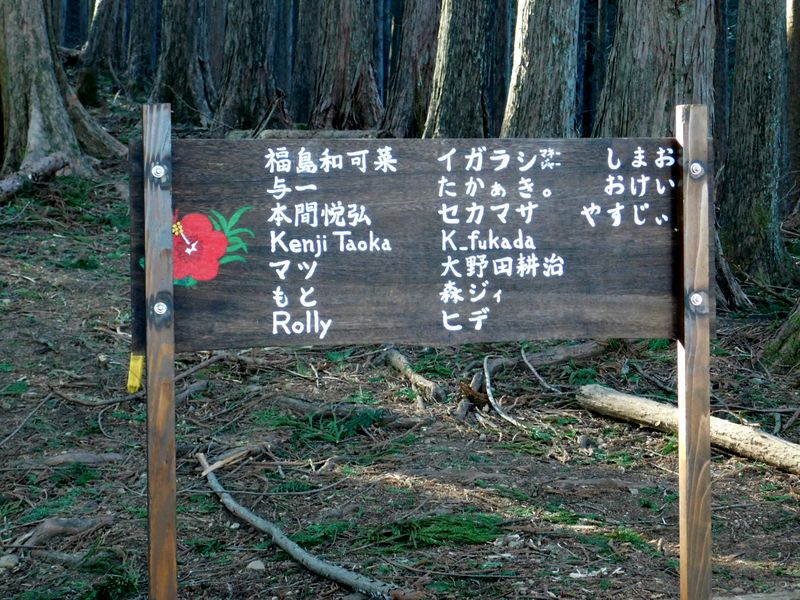 福島和可菜
与一
本間悦弘
Kenji Taoka
マツ
もと
Rolly
イガラシ
たかぁき。
セカマサ
K_fukada
大野田耕治
森ジィ
ヒデ
しまお
おけい
やすじぃ